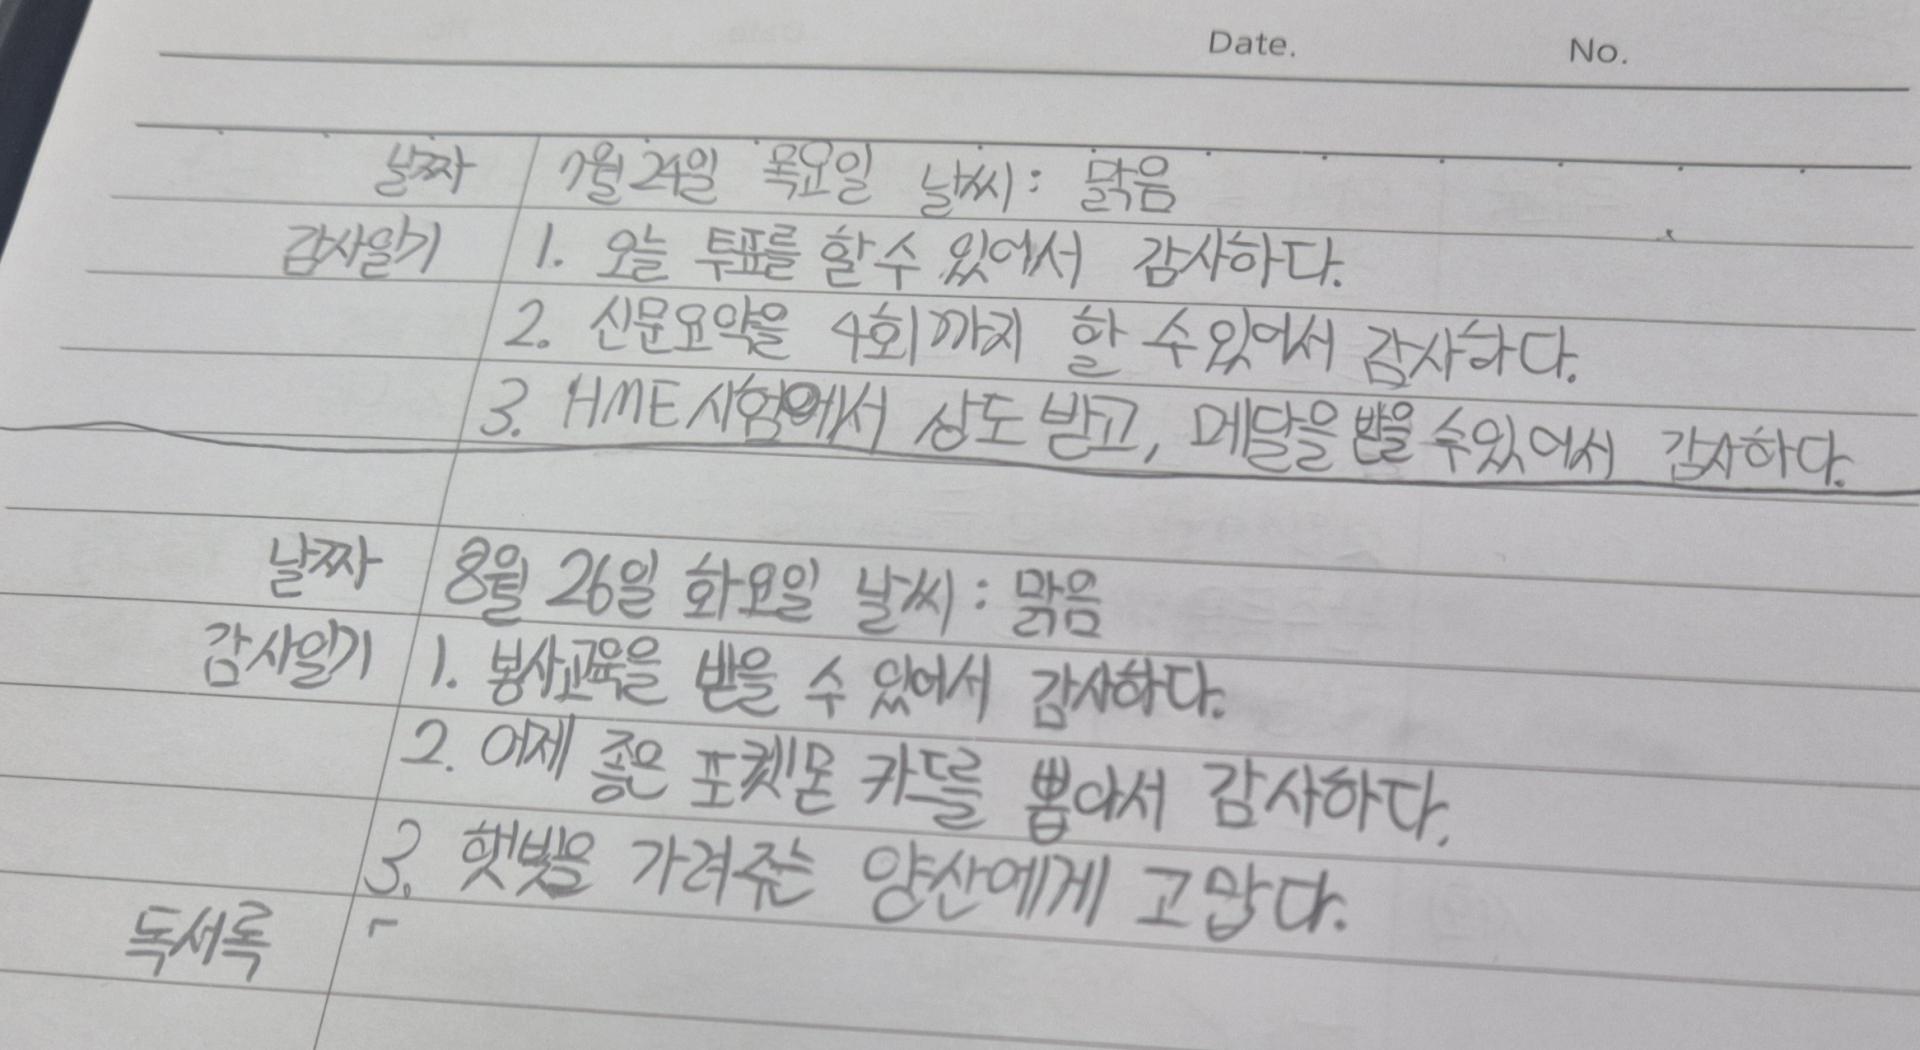 Date. No.
날짜 7월 24일 목요일 날씨: 맑음
감사일기 1. 오늘 투표를 할 수 있어서 감사하다.
2. 신문요약을 4회까지 할 수 있어서 감사하다.
3. HME시험에서 상도 받고, 메달을 받을 수 있어서 감사하다.
날짜 8월 26일 화요일 날씨: 맑음
감사일기 1. 봉사교육을 받을 수 있어서 감사하다.
2. 어제 좋은 포켓몬 카드를 뽑아서 감사하다.
3. 햇빛을 가려주는 양산에게 고맙다.
독서록